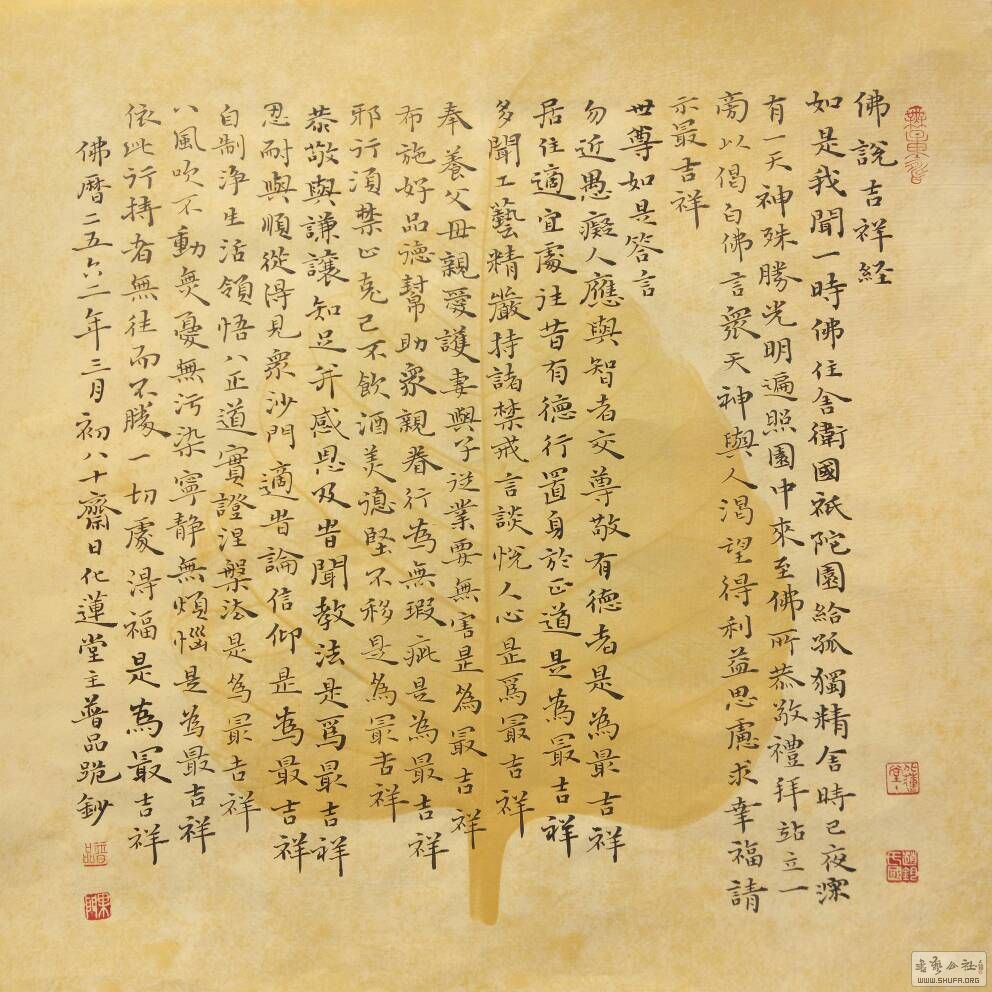 佛說吉祥経
如是我聞一時佛住舍衛國祇陀園給孤獨精舍時已夜深
有一天神殊勝光明遍照園中來至佛所恭敬禮拜站立一
旁以偈白佛言眾天神與人渴望得利益思慮求幸福請
示最吉祥
世尊如是答言
勿近愚癡人應與智者交尊敬有德者是為最吉祥
居住適宜處往昔有德行置身於正道是為最吉祥
多聞工藝精嚴持諸禁戒言談悅人心是爲最吉祥
奉養父母親愛護妻與子從業要無害是為最吉祥
布施好品德幫助衆親眷行為無瑕疵是為最吉祥
邪行須禁止克己不飲酒美德堅不移是為最吉祥
恭敬與謙讓知足并感恩及時聞教法是爲最吉祥
忍耐與順從得見衆沙門適時論信仰是為最吉祥
自制淨生活領悟八正道實證涅槃法是為最吉祥
八風吹不動無憂無污染寧静無煩惱是為最吉祥
依此行持者無往而不勝一切處得福是為最吉祥
佛曆二五六二年三月初八十齋日化蓮堂主普品跪鈔
化蓮堂
普品
WWW.SHUFA.ORG